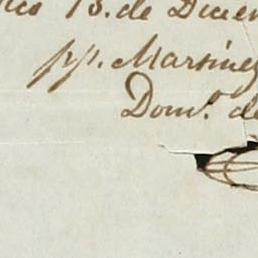 13. de Diciem
pp. Martinez
Dom.º de